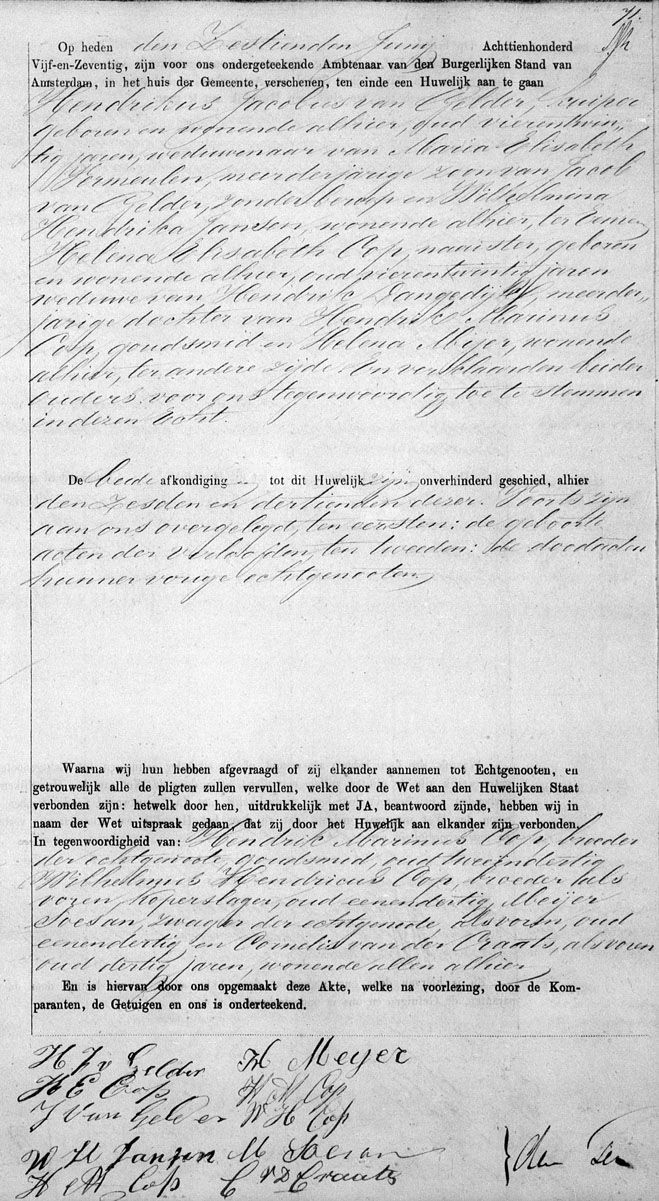 Op heden den Zestienden Junij Achttienhonderd
Vijf-en-Zeventig, zijn voor ons ondergeteekende Ambtenaar van den Burgerlijken Stand van
Amsterdam, in het huis der Gemeente, verschenen, ten einde een Huwelijk aan te gaan
Hendrikus Jacobus van Gelder, kuiper
geboren en wonende alhier, oud vierentwin„
tig jaren, weduwenaar van Maria Elisabeth
Vermeulen, meerderjarige zoon van Jacob
van Gelder, zonder beroep en Wilhelmina
Hendrika Jansen, wonende alhier, ter eenre
Helena Elisabeth Cop, naaister, geboren
en wonende alhier, oud vierentwintig jaren
weduwe van Hendrik Dangedijk, meerder„
jarige dochter van Hendrik Marinus
Cop, goudsmid en Helena Meijer, wonende
alhier, ter andere zijde En verklaarden beider
ouders voor ons tegenwoordig toe te stemmen
in dezen Echt.
De beide afkondiging tot dit Huwelijk zijn onverhinderd geschied, alhier
den Zesden en dertienden dezer. Voorts zijn
aan ons overgelegd, ten eersten: de geboorte
acten der verloofden, ten tweeden: de doodacten
hunner vorige echtgenooten.
Waarna wij hun hebben afgevraagd of zij elkander aannemen tot Echtgenooten, en
getrouwelijk alle de pligten zullen vervullen, welke door de Wet aan den Huwelijken Staat
verbonden zijn: hetwelk door hen, uitdrukkelijk met JA, beantwoord zijnde, hebben wij in
naam der Wet uitspraak gedaan, dat zij door het Huwelijk aan elkander zijn verbonden.
In tegenwoordigheid van: Hendrik Marinus Cop, broeder
der echtgenoote, goudsmid, oud tweeendertig
Wilhelmus Hendricus Cop, broeder als
voren, koperslager, oud eenendertig, Meijer
Soesan, zwager der echtgenoote, als voren, oud
eenendertig en Cornelis van der Craats, als voren
oud dertig jaren, wonende allen alhier
En is hiervan door ons opgemaakt deze Akte, welke na voorlezing, door de Kom-
paranten, de Getuigen en ons is onderteekend.
H J v Gelder H Meyer
H E Cop H M Cop
J Van Gelder W H Cop
W H Jansen M Soesan
H M Cop C v D Craats